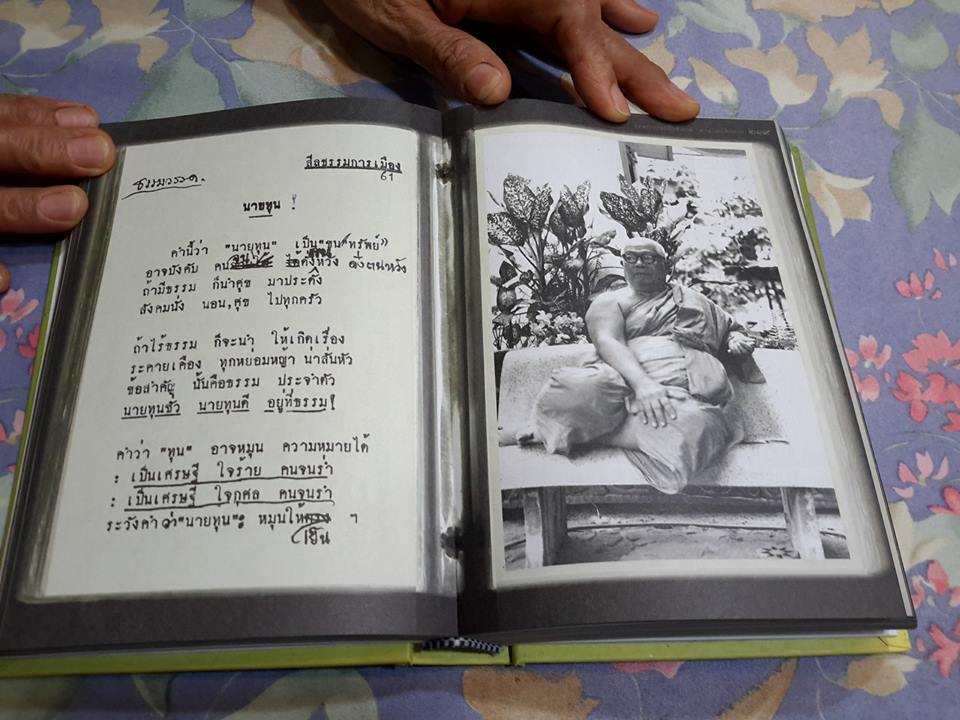 ศีลธรรมการเมือง
61
ธรรมวรรค.
นายทุน !
คำนี้ว่า "นายทุน" เป็น "ทรัพย์"
อาจบังคับ คน ได้ดั่งหวัง ดั่งตนหวัง
ถ้ามีธรรม ก็นำสุข มาประดัง
สังคมนั่ง นอน,สุข ไปทุกครัว
ถ้าไร้ธรรม ก็จะนำ ให้เกิดเรื่อง
ระคายเคือง ทุกหยอมหญ้า น่าสั่นหัว
ข้อสำคัญ นั้นคือธรรม ประจำตัว
นายทุนชั่ว นายทุนดี อยู่ที่ธรรม!
คำว่า "ทุน" อาจหมุน ความหมายได้
: เป็นเศรษฐี ใจร้าย คนจนร่ำ
: เป็นเศรษฐี ใจกุศล คนจนรำ
ระวังคำ ว่า"นายทุน": หมุนให้ ฯ
เย็น